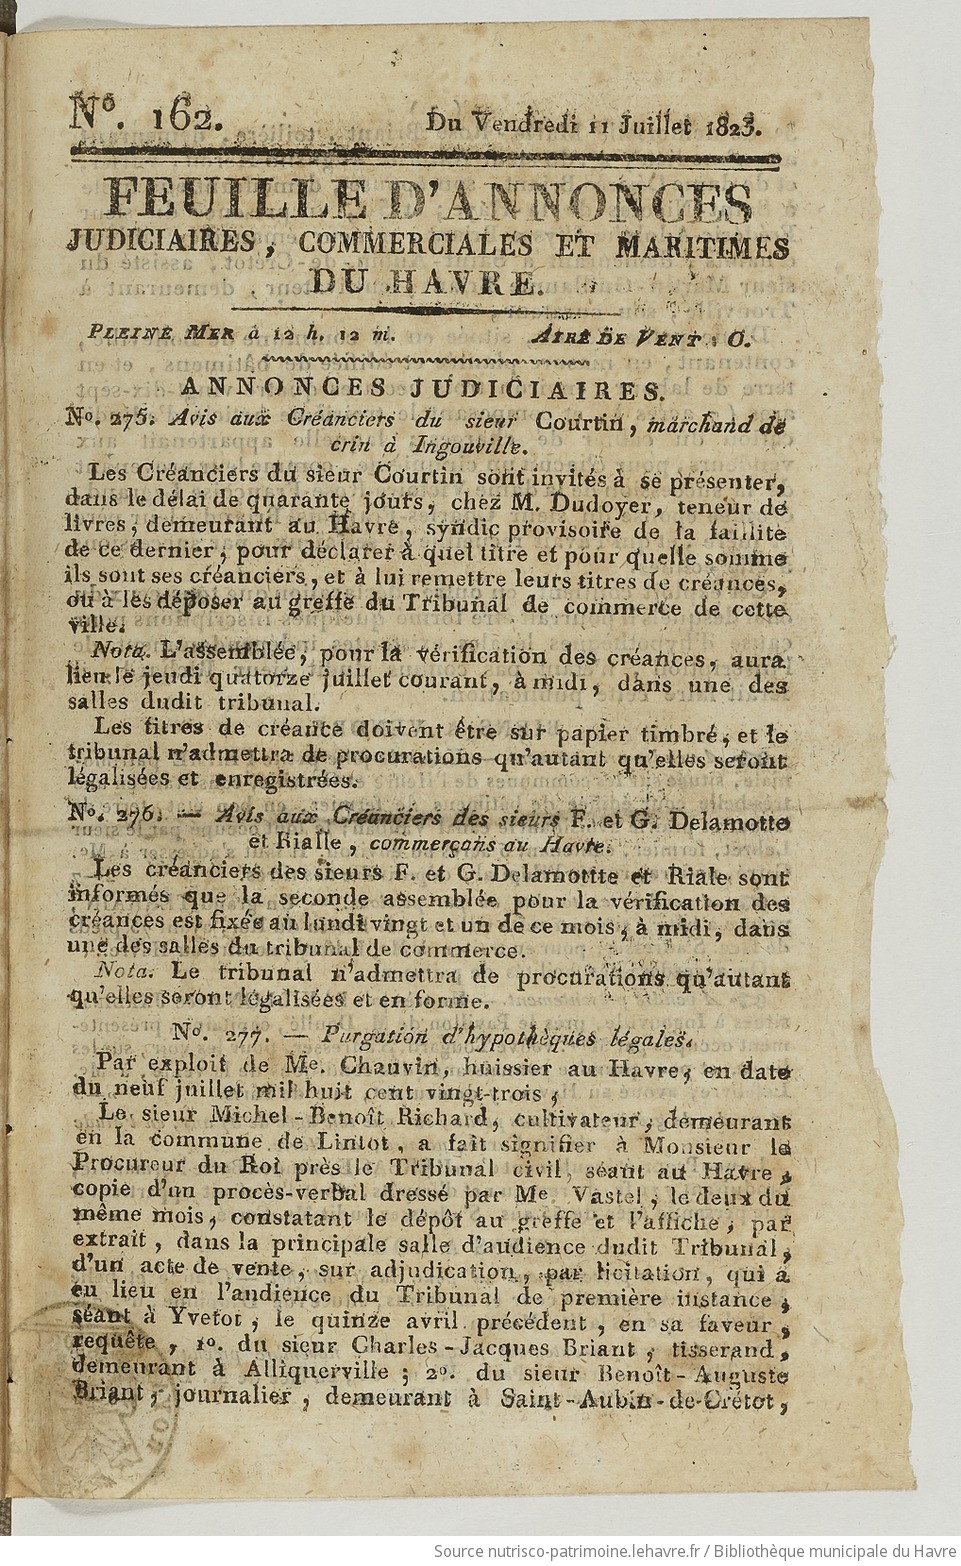 N°. 162.
Du Vendredi 11 Juillet 1823.
FEUILLE D'ANNONCES
JUDICIAIRES, COMMERCIALES ET MARITIMES
DU HAVRE.
PLEINE MER à 12 h. 12 m. AIRE DE VENT : O.
ANNONCES JUDICIAIRES.
N°. 275. Avis aux Créanciers du sieur Courtin, marchand de
crin à Ingouville.
Les Créanciers du sieur Courtin sont invités à se présenter,
dans le délai de quarante jours, chez M. Dudoyer, teneur de
livres, demeurant au Havre, syndic provisoire de la faillite
de ce dernier, pour déclarer à quel titre et pour quelle somme
ils sont ses créanciers, et à lui remettre leurs titres de créances,
ou à les déposer au greffe du Tribunal de commerce de cette
ville.
Nota. L'assemblée, pour la vérification des créances, aura
lieu le jeudi quatorze juillet courant, à midi, dans une des
salles dudit tribunal.
Les titres de créance doivent être sur papier timbré, et le
tribunal n'admettra de procurations qu'autant qu'elles seront
légalisées et enregistrées.
N°. 276. — Avis aux Créanciers des sieurs F. et G. Delamotte
et Rialle, commerçans au Havre.
Les créanciers des sieurs F. et G. Delamotte et Riale sont
informés que la seconde assemblée pour la vérification des
créances est fixée au lundi vingt et un de ce mois, à midi, dans
une des salles du tribunal de commerce.
Nota. Le tribunal n'admettra de procurations qu'autant
qu'elles seront légalisées et en forme.
N°. 277. — Purgation d'hypothèques légales.
Par exploit de Me. Chauvin, huissier au Havre, en date
du neuf juillet mil huit cent vingt-trois,
Le sieur Michel-Benoît Richard, cultivateur, demeurant
en la commune de Lintot, a fait signifier à Monsieur le
Procureur du Roi près le Tribunal civil, séant au Havre,
copie d'un procès-verbal dressé par Me Vastel, le deux du
même mois, constatant le dépôt au greffe et l'affiche, par
extrait, dans la principale salle d'audience dudit Tribunal,
d'un acte de vente, sur adjudication, par licitation, qui a
eu lieu en l'audience du Tribunal de première instance,
séant à Yvetot, le quinze avril précédent, en sa faveur,
requête, 1°. du sieur Charles-Jacques Briant, tisserand,
demeurant à Alliquerville; 2°. du sieur Benoît-Auguste
Briant, journalier, demeurant à Saint-Aubin-de-Crétot,
Source nutrisco-patrimoine.lehavre.fr / Bibliothèque municipale du Havre